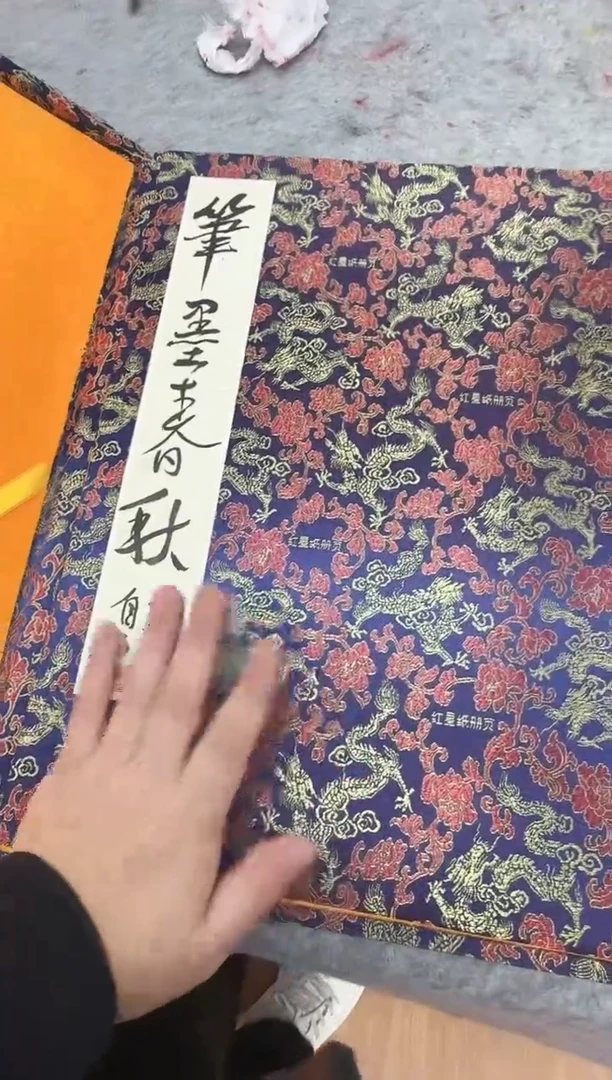 筆墨春秋
自
红星纸册页
红星纸册页
红星纸册页
红星纸册页